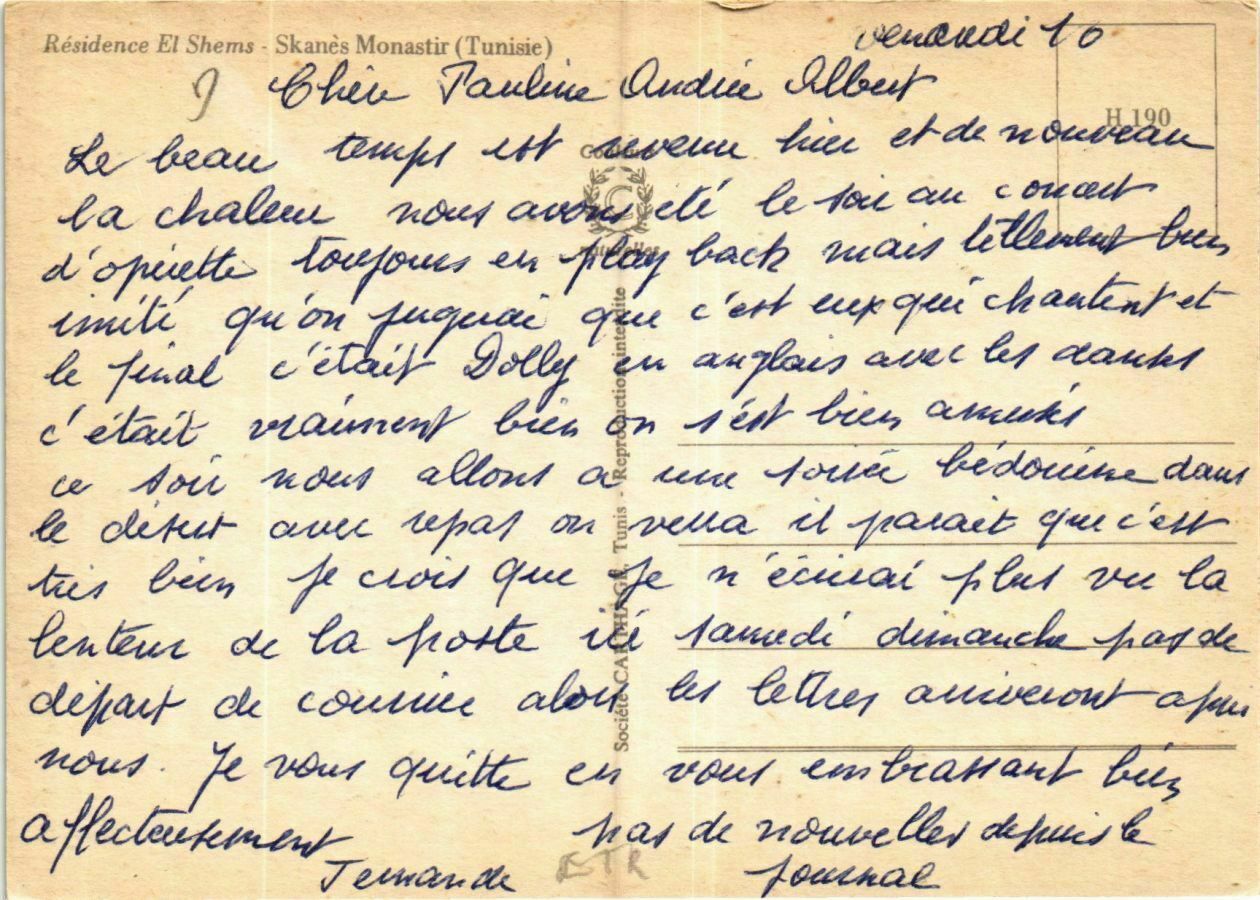 Résidence El Shems - Skanès Monastir (Tunisie)
vendredi 10
H 190
Chère Pauline Andrée Albert
Le beau temps est revenu hier et de nouveau
la chaleur nous avons été le soir au concert
d'opérette toujours en play back mais tellement bien
imité qu'on jugerai que c'est eux qui chantent et
le final c'était Dolly en anglais avec les danses
c'était vraiment bien on s'est bien amusés
ce soir nous allons a une soirée bédouine dans
le désert avec repas on verra il parait que c'est
très bien je crois que je n'écrirai plus vu la
lenteur de la poste ici samedi dimanche pas de
départ de courrier alors les lettres arriveront apres
nous. Je vous quitte en vous embrassant bien
affectueusement
Fernande
pas de nouvelles depuis le
journal
ETR
Couleurs
C
naturelles
Société CARTHAGE, Tunis - Reproduction interdite